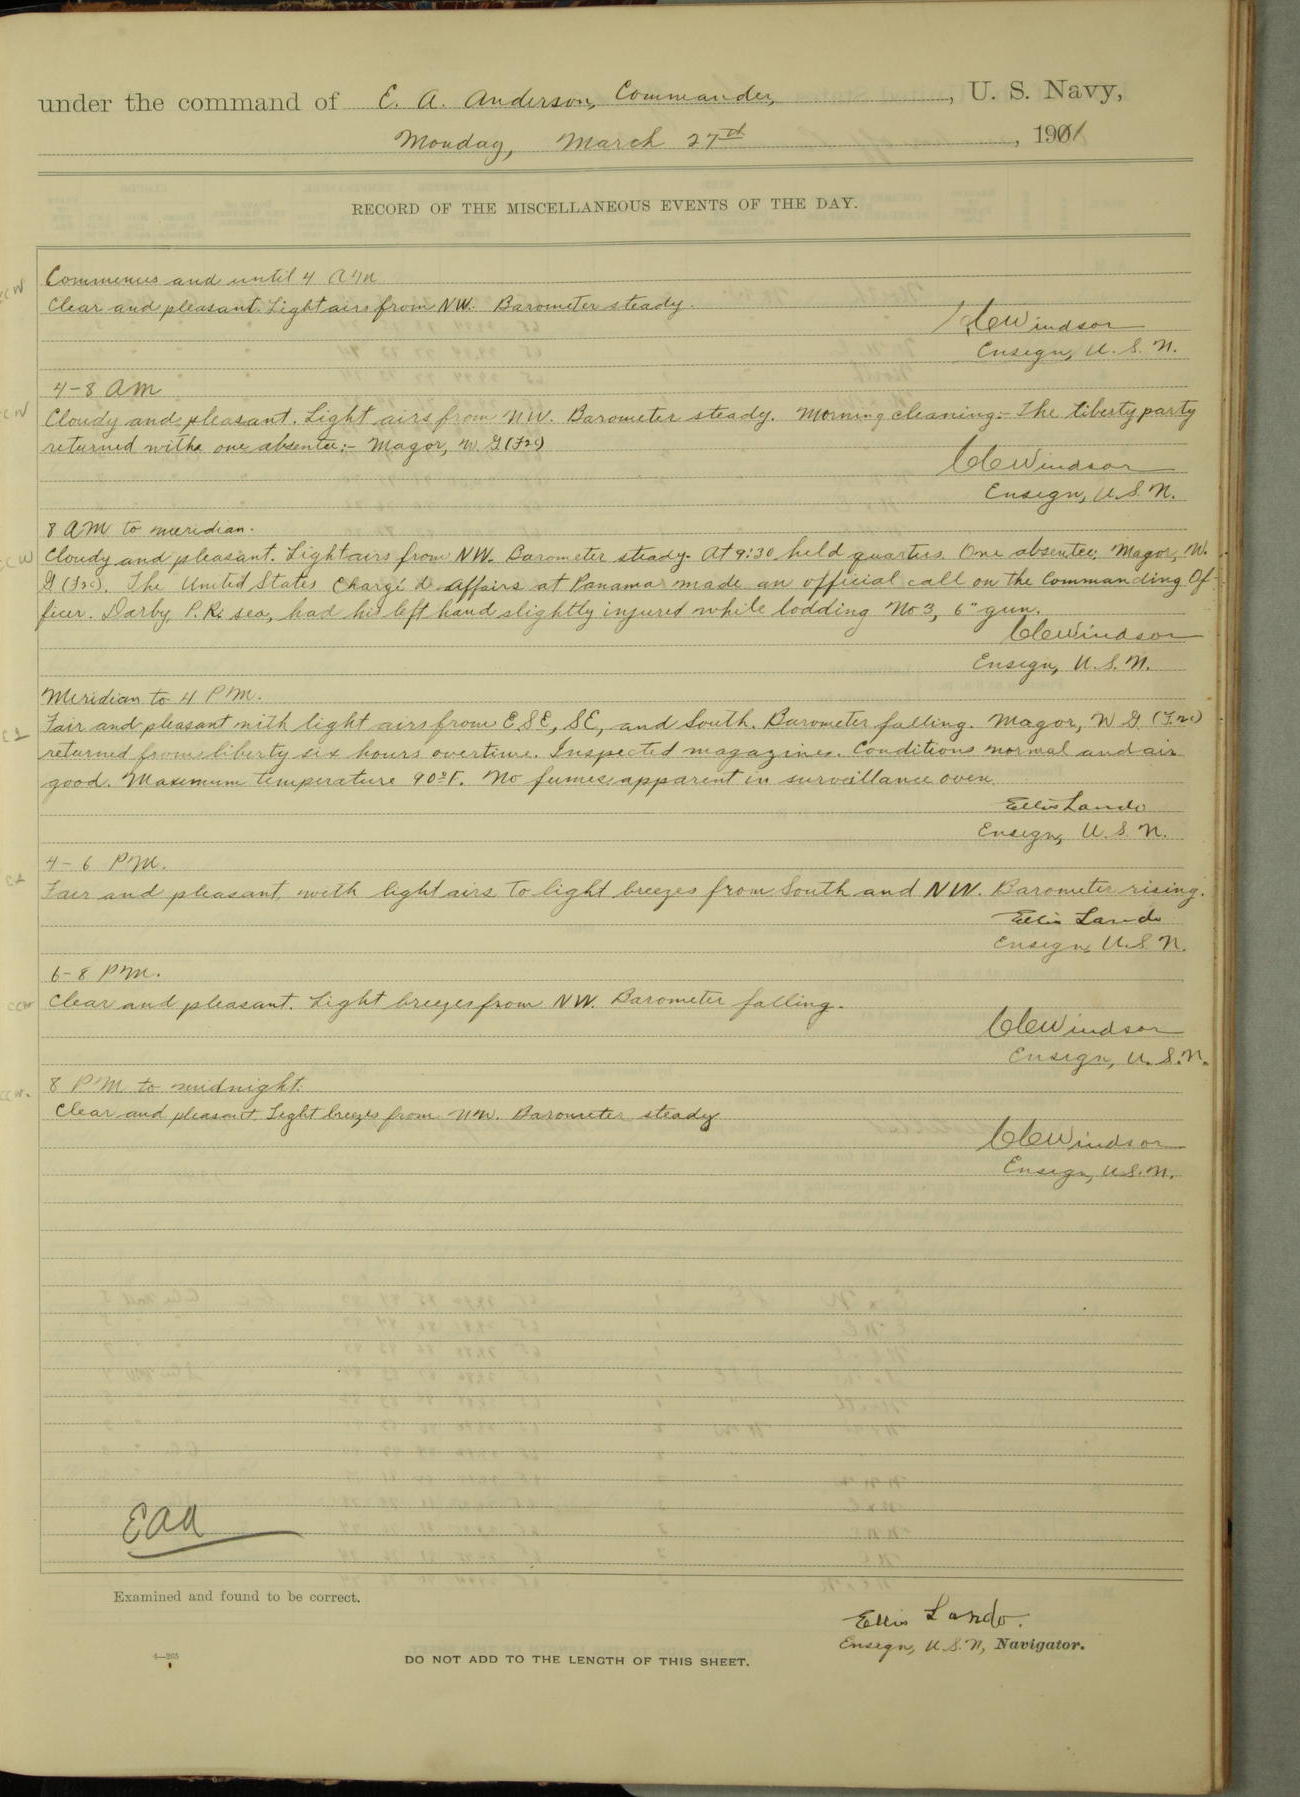 under the command of E. A. Anderson, Commander, , U. S. Navy,
Monday, March 27th , 1911
RECORD OF THE MISCELLANEOUS EVENTS OF THE DAY.
Commences and until 4 AM
Clear and pleasant. Light airs from NW. Barometer steady.
CCWindsor
Ensign, U. S. N.
4-8 AM
Cloudy and pleasant. Light airs from NW. Barometer steady. Morning cleaning:- The liberty party
returned with one absentee:- Magor, W. G (F2c)
CCWindsor
Ensign, U.S.N.
8 AM to meridian.
Cloudy and pleasant. Light airs from NW. Barometer steady. At 9:30 held quarters. One absentee: Magor, W.
G (F2c). The United States Chargé d Affairs at Panama made an official call on the Commanding Of
ficer. Darby, P. R. sea, had his left hand slightly injured while lodding No 3, 6" gun.
CCWindsor
Ensign, U.S.N.
Meridian to 4 PM.
Fair and pleasant with light airs from ESE, SE, and South. Barometer falling. Magor, W G (F2c)
returned from liberty six hours overtime. Inspected magazines. Conditions normal and air
good. Maximum temperature 90°F. No fumes apparent in surveillance oven.
Ellis Lando
Ensign, U. S. N.
4-6 PM.
Fair and pleasant, with light airs to light breezes from South and NW. Barometer rising.
Ellis Lando
Ensign, U.S. N.
6-8 PM.
Clear and pleasant. Light breezes from NW. Barometer falling.
CCWindsor
Ensign, U.S.N.
8 PM to midnight.
Clear and pleasant. Light breezes from NW. Barometer steady
CCWindsor
Ensign, U.S.N.
EAA
Examined and found to be correct.
Ellis Lando.
Ensign, U.S.N, Navigator.
DO NOT ADD TO THE LENGTH OF THIS SHEET.